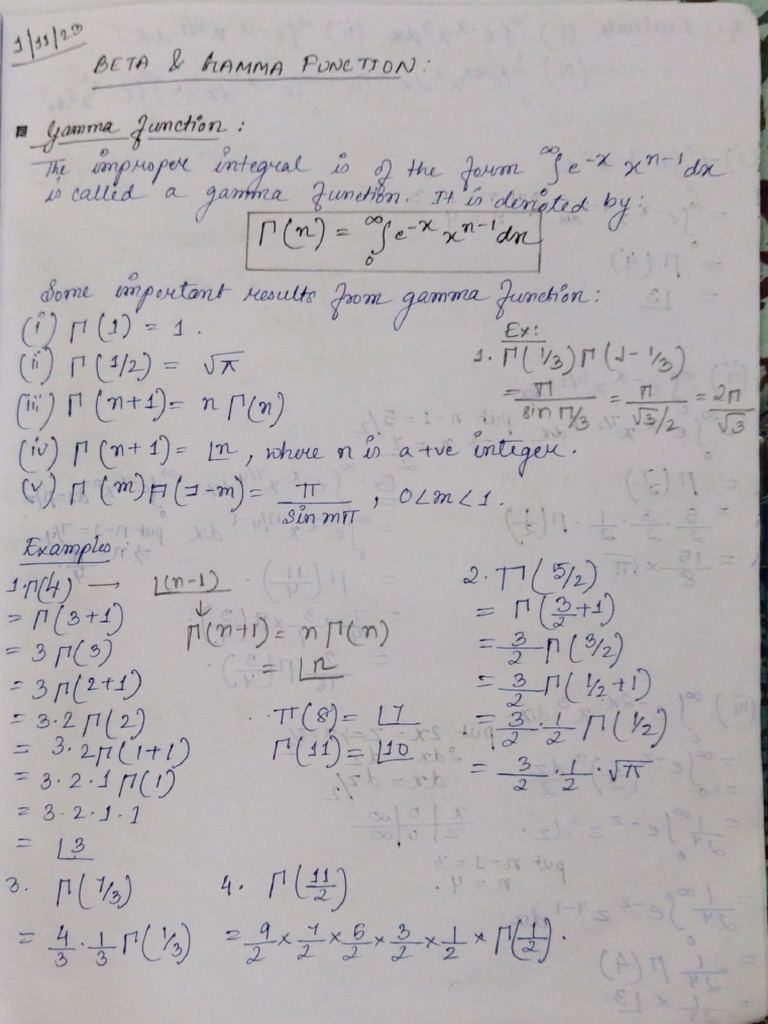 1/11/23
BETA & GAMMA FUNCTION:
▪ Gamma function:
The improper integral is of the form ∞∫e^-x x^n-1 dx
is called a gamma function. It is denoted by:
Γ(n) = ∞∫0 e^-x x^n-1 dx
Some important results from gamma function:
(i) Γ(1) = 1.
(ii) Γ(1/2) = √π
(iii) Γ(n+1) = nΓ(n)
Ex:
1. Γ(1/3)Γ(1-1/3)
= π/sin π/3 = π/√3/2 = 2π/√3
(iv) Γ(n+1) = ⌊n, where n is a +ve integer.
(v) Γ(m)Γ(1-m) = π/sin mπ, 0<m<1.
Examples
1. Γ(4) → ⌊(n-1)
= Γ(3+1)
= 3Γ(3)
= 3Γ(2+1)
= 3.2Γ(2)
= 3.2Γ(1+1)
= 3.2.1Γ(1)
= 3.2.1.1
= ⌊3
↓
Γ(n+1) = nΓ(n)
= ⌊n
Γ(8) = ⌊7
Γ(11) = ⌊10
2. Γ(5/2)
= Γ(3/2+1)
= 3/2 Γ(3/2)
= 3/2 Γ(1/2+1)
= 3/2 · 1/2 Γ(1/2)
= 3/2 · 1/2 · √π
3. Γ(7/3)
= 4/3 · 1/3 Γ(1/3)
4. Γ(11/2)
= 9/2 × 7/2 × 5/2 × 3/2 × 1/2 × Γ(1/2).